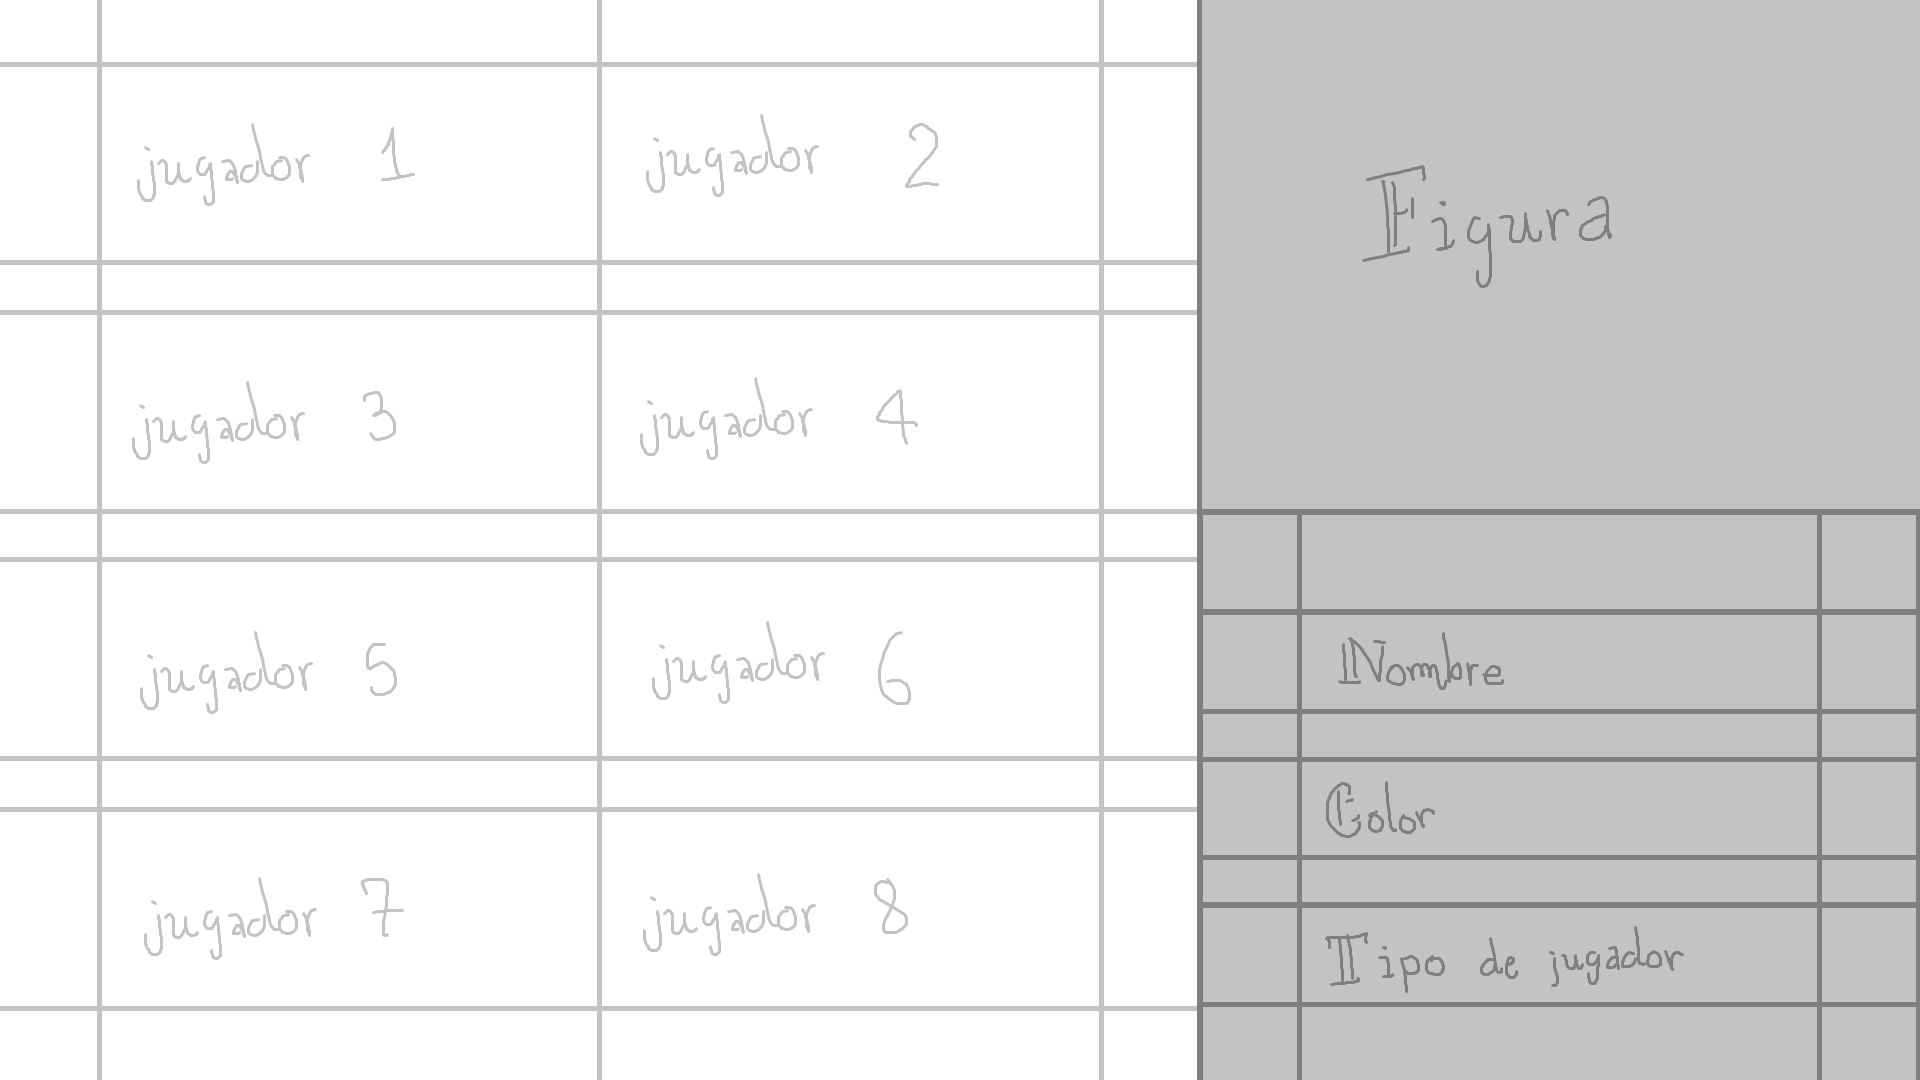 jugador 1
jugador 2
jugador 3
jugador 4
jugador 5
jugador 6
jugador 7
jugador 8
Figura
Nombre
Color
Tipo de jugador